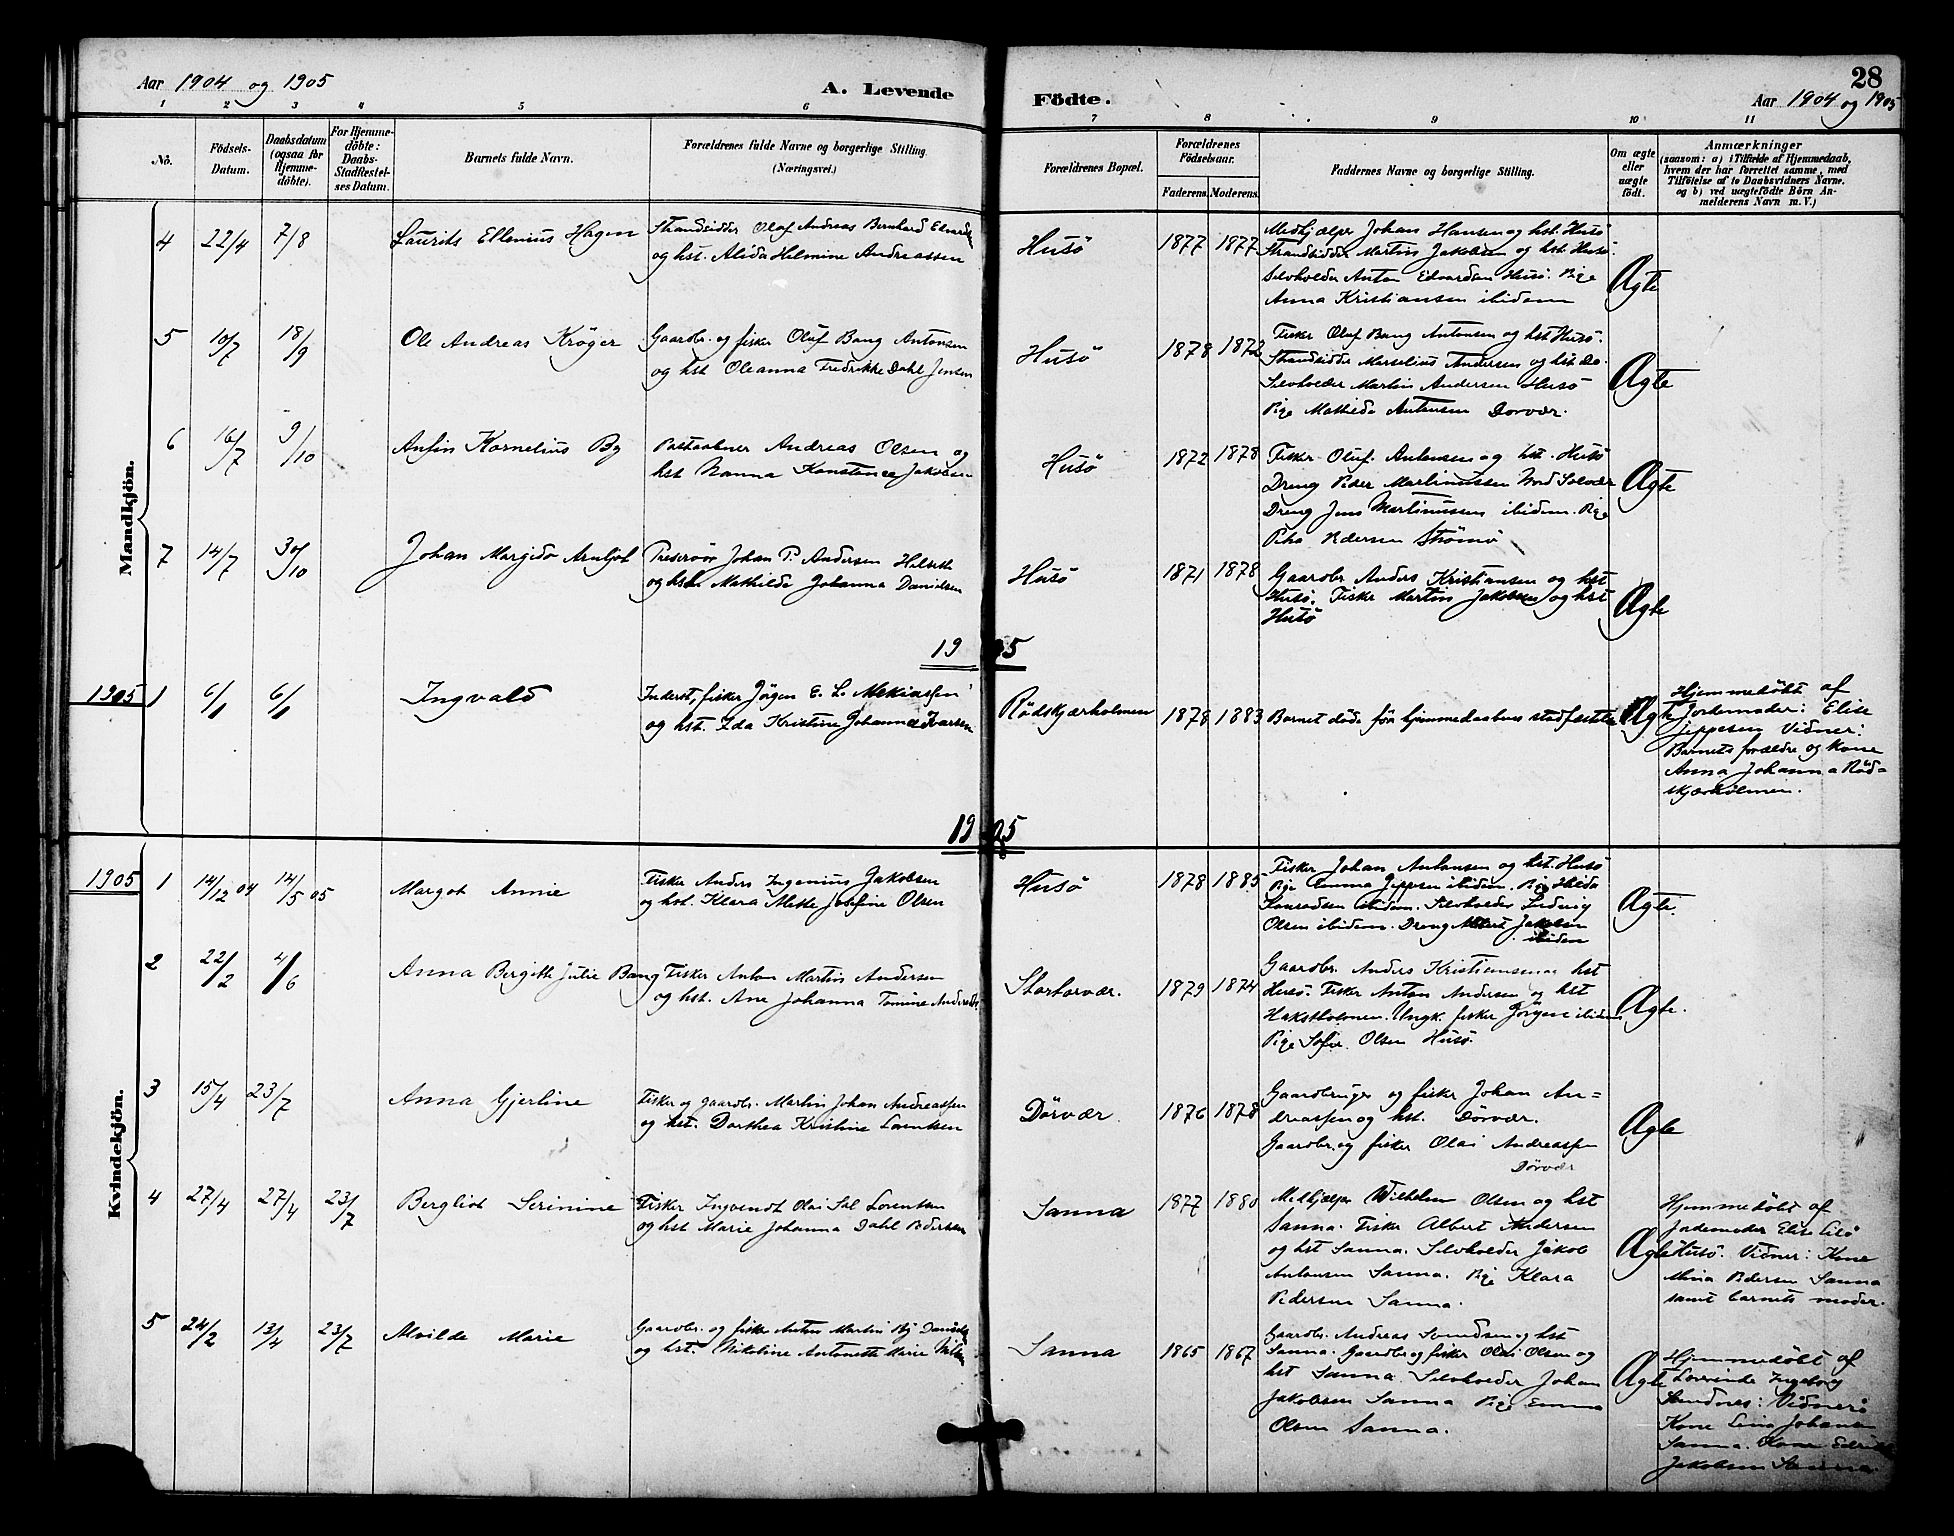 Aar 1904 og 1905
A. Levende
Födte.
28
Aar 1904 og 1905
1 2 3 4 5 6 7 8 9 10 11
No.
Födsels-
Datum.
Daabsdatum
(ogsaa for
Hjemme-
döbte).
For Hjemme-
döbte:
Daabs-
Stadfæstel-
ses Datum.
Barnets fulde Navn.
Forældrenes fulde Navne og borgerlige Stilling.
(Næringsvei.)
Forældrenes Bopæl.
Forældrenes
Födselsaar.
Faderens. Moderens.
Faddernes Navne og borgerlige Stilling.
Om ægte
eller
uægte
födt.
Anmærkninger
(saasom: a) i Tilfælde af Hjemmedaab,
hvem der har forrettet samme, med
Tilföielse af to Daabsvidners Navne,
og b) ved uægtefödte Börn An-
melderens Navn m. V.)
Mandkjön.
4 22/4 7/8
Laurits Ellenius Hagen
Strandsidder Olaf Andreas Bernhard
og hst. Alida Helmine Andreassen
Husö
1877 1877
Medhjælper Johan Hansen og hst. Husö
Strandsidder Martin Jakobsen og hst. Husö.
Selvholder Anton Edvardsen Husö. Pige
Anna Kristiansen ibidem
Ægte
5 10/7 18/9
Ole Andreas Kröger
Gaardbr. og fisker Oluf Bang Antonsen
og hst Oleanna Fredrikke Dahl Jensen
Husö
1878 1872
Fisker Oluf Bang Antonsen og hst Husö.
Strandsidder Marselius Andersen og hst do.
Selvholder Martin Andersen Husö
Pige Mathilda Antonsen Dorvær.
Ægte
6 16/7 9/10
Anfin Kornelius By
Postaabner Andreas Olsen og
hst Nanna Konstance Jakobsen
Husö
1872 1878
Fisker Oluf Antonsen og hst. Husö
Dreng Peder Martinussen Nord Solvær
Dreng Jens Martinussen ibidem. Pige
Petra Pedersen Strömö
Ægte
7 14/7 30/10
Johan Margido Arnljot
Johan P. Andersen
og hst Mathilde Johanna Danielsen
Husö
1871 1878
Gaardbr Anders Kristiansen og hst
Husö. Fisker Martin Jakobsen og hst
Husö
Ægte
1905
1905 1 6/1 6/1
Ingvald
Inderst, fisker Jörgen E. L.
og hst. Ida Kristine Johanna Ivarsen
Rödskjærholmen
1878 1883
Barnet döde för hjemmedaaben stadfæstes
Ægte
Hjemmedöbt af
Jordemoder: Elise
Jeppesen Vidner:
Barnets forældre og Kone
Anna Johanna Röd-
skjærholmen.
1905
Kvindekjön.
1905 1 14/12 04 14/5 05
Margot Annie
Fisker Anders Ingenius Jakobsen
og hst. Klara Mette Josefine Olsen
Husö
1878 1885
Fisker Johan Antonsen og hst. Husö
Pige Emma Jeppesen ibidem. Pige Hilda
Konradsen ibidem. Selvholder Ludvig
Olsen ibidem. Dreng Albert Jakobsen
ibidem
Ægte.
2 22/2 4/6
Anna Bergitte Julie Bang
Fisker Anton Martin Andersen
og hst. Ane Johanna Tomine
Stortorvær.
1879 1874
Gaardbr. Anders Kristiansen og hst
Husö. Fisker Anton Andersen og hst
Hakstholmen. Ungk. fisker Jörgen ibidem
Pige Sofie Olsen Husö.
Ægte.
3 15/4 23/7
Anna Gjertine
Fisker og gaardbr. Martin Johan Andreassen
og hst. Dorthea Kristine Lorentsen
Dörvær.
1876 1878
Gaardbruger og fisker Johan An-
dreassen og hst. Dörvær.
Gaardbr. og fisker Olai Andreassen
Dörvær
Ægte
4 27/4 27/4 23/7
Bergliot Serinine
Fisker Ingvendt Olai Sal Lorentsen
og hst Marie Johanna Dahl Pedersen
Sanna
1877 1880
Medhjælper Wilhelm Olsen og hst
Sanna. Fisker Albert Andersen
og hst Sanna. Selvholder Jakob
Antonsen Sanna. Pige Klara
Pedersen Sanna.
Ægte
Hjemmedöbt af
Jordemoder Elise
Husö. Vidner: Kone
Mina Pedersen Sanna
samt barnets moder.
5 24/2 13/4 23/7
Alvilde Marie
Gaardbr. og fisker Anton Martin By
og hst. Nikoline Antonette Marie
Sanna
1865 1867
Gaardbr. Andreas og hst
Sanna. Gaardbr og fisker Olai Olsen og
hst Sanna. Selvholder Johan
Jakobsen Sanna Pige Emma
Olsen Sanna.
Ægte
Hjemmedöbt af
Ingeborg
Sandnes: Vidner:
Kone Lina Johansen
Sanna. Kone
Jakobsen Sanna.